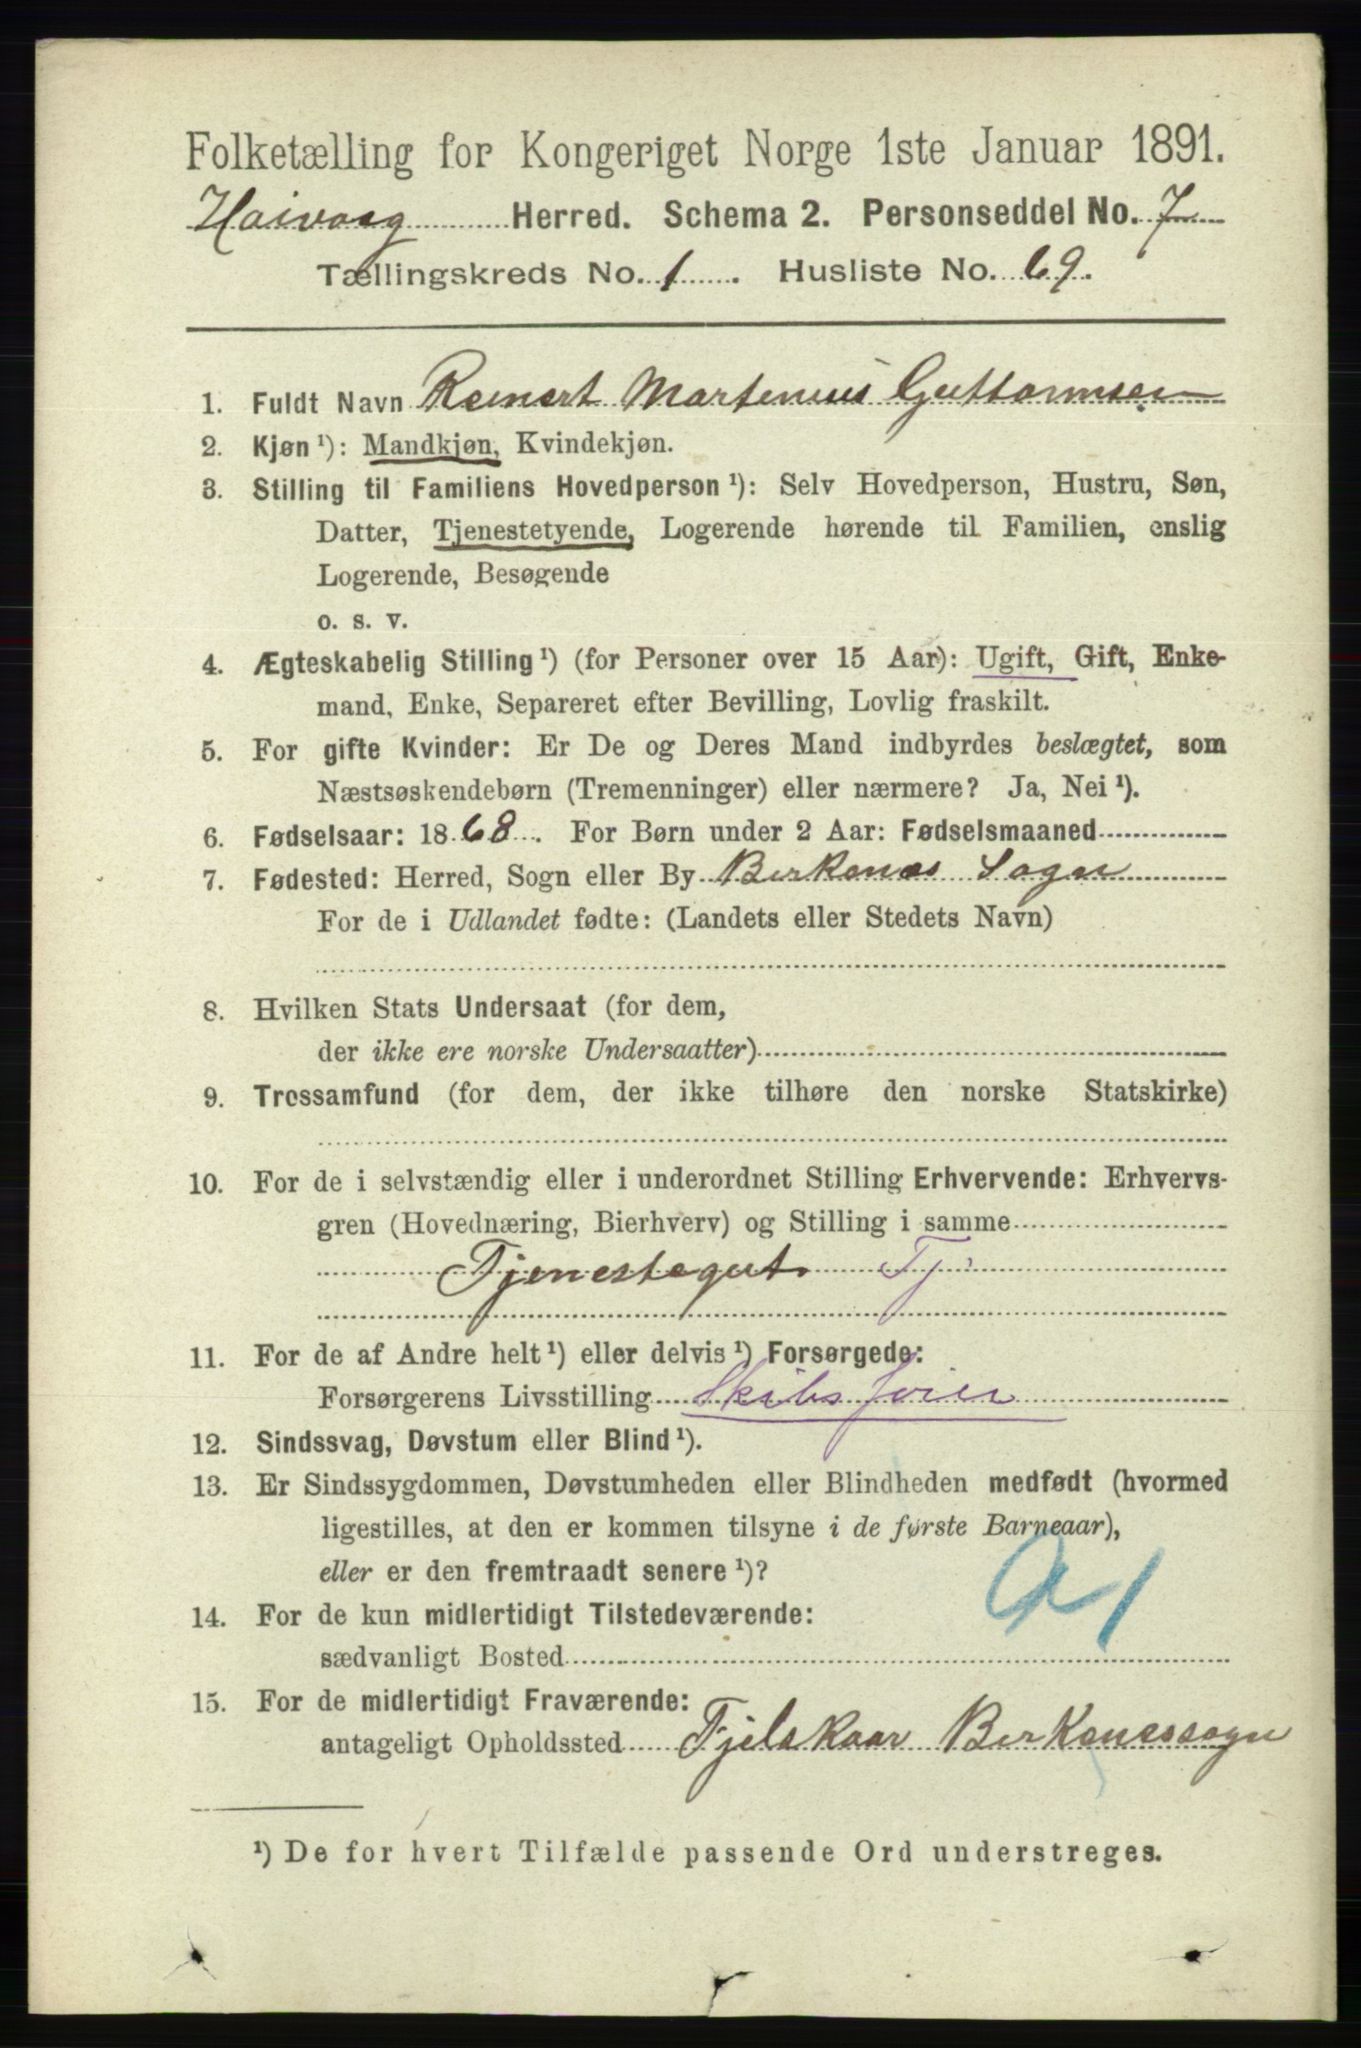 Folketælling for Kongeriget Norge 1ste Januar 1891.
Høivaag Herred. Schema 2. Personseddel No. 7
Tællingskreds No. 1. Husliste No. 69.
1. Fuldt Navn Reinert Martenius Guttormsen
2. Kjøn ¹): Mandkjøn, Kvindekjøn.
3. Stilling til Familiens Hovedperson ¹): Selv Hovedperson, Hustru, Søn,
Datter, Tjenestetyende, Logerende hørende til Familien, enslig
Logerende, Besøgende
o. s. v.
4. Ægteskabelig Stilling ¹) (for Personer over 15 Aar): Ugift, Gift, Enke-
mand, Enke, Separeret efter Bevilling, Lovlig fraskilt.
5. For gifte Kvinder: Er De og Deres Mand indbyrdes beslægtet, som
Næstsøskendebørn (Tremenninger) eller nærmere? Ja, Nei ¹).
6. Fødselsaar: 1868. For Børn under 2 Aar: Fødselsmaaned
7. Fødested: Herred, Sogn eller By Berkenes Sogn
For de i Udlandet fødte: (Landets eller Stedets Navn)
8. Hvilken Stats Undersaat (for dem,
der ikke ere norske Undersaatter)
9. Trossamfund (for dem, der ikke tilhøre den norske Statskirke)
10. For de i selvstændig eller i underordnet Stilling Erhvervende: Erhvervs-
gren (Hovednæring, Bierhverv) og Stilling i samme
Tjenestegut. Tj
11. For de af Andre helt ¹) eller delvis ¹) Forsørgede:
Forsørgerens Livsstilling Skibsfører
12. Sindssvag, Døvstum eller Blind ¹).
13. Er Sindssygdommen, Døvstumheden eller Blindheden medfødt (hvormed
ligestilles, at den er kommen tilsyne i de første Barneaar),
eller er den fremtraadt senere ¹)?
14. For de kun midlertidigt Tilstedeværende:
sædvanligt Bosted
15. For de midlertidigt Fraværende:
antageligt Opholdssted Fjelskaar Berkenessogn
¹) De for hvert Tilfælde passende Ord understreges.